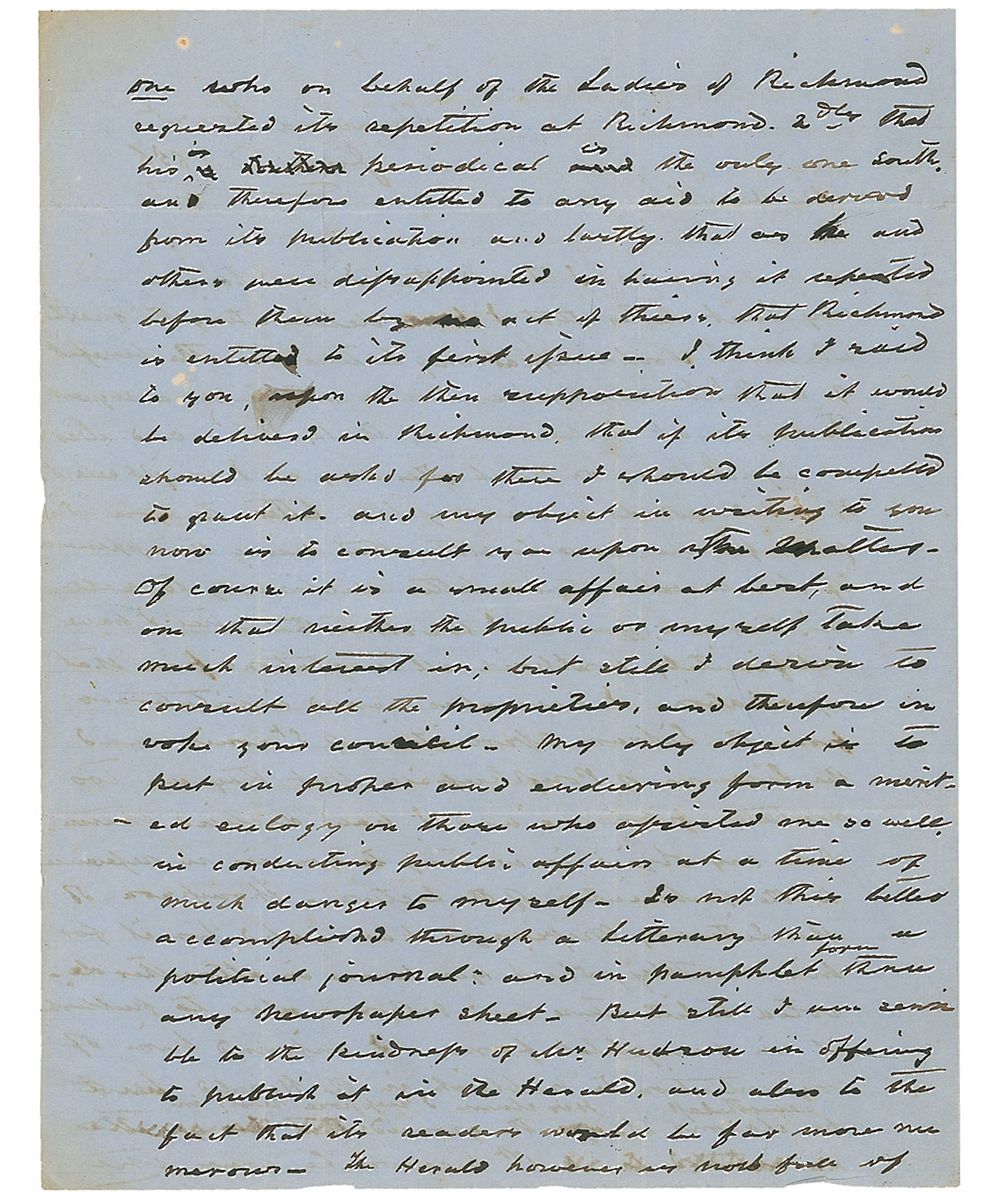 one who on behalf of the Ladies of Richmond
requested its repetition at Richmond. 2dly that
his is periodical is the only one South.
and therefore entitled to any aid to be derived
from its publication and lastly. that as he and
others were disappointed in having it repeated
before them by act of theirs, that Richmond
is entitled to its first issue – I think I said
to you, upon the then supposition that it would
be delivered in Richmond, that if its publication
should be asked for there I should be compelled
to grant it. and my object in writing to you
now is to consult you upon the matter –
Of course it is a small affair at best, and
one that neither the public or myself take
much interest in; but still I desire to
consult all the proprieties, and therefore in
voke your council – My only object is to
put in proper and enduring form a merit-
-ed eulogy on those who assisted me so well
in conducting public affairs at a time of
much danger to myself – Is not this better
accomplishd through a litterary than a
political journal: and in pamphlet form than
any Newspaper sheet – But still I am sensi
ble to the kindness of Mr. Hudson in offering
to publish it in the Herald, and also to the
fact that its readers would be far more nu
merous – The Herald however is not full of